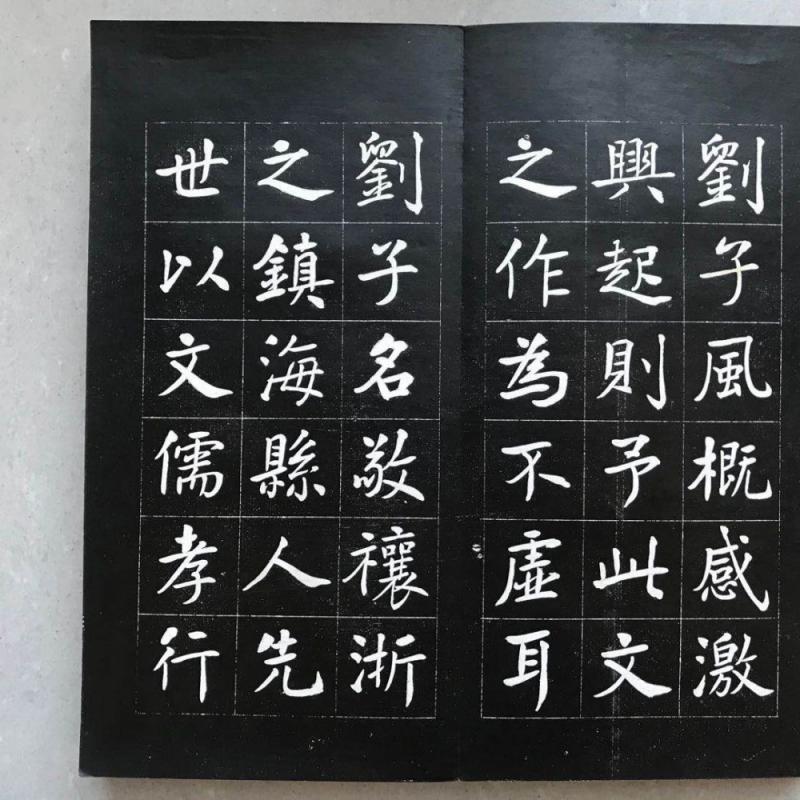 劉子風概感激
興起則予此文
之作為不虛耳
劉子名敬禳浙
之鎮海縣人先
世以文儒孝行